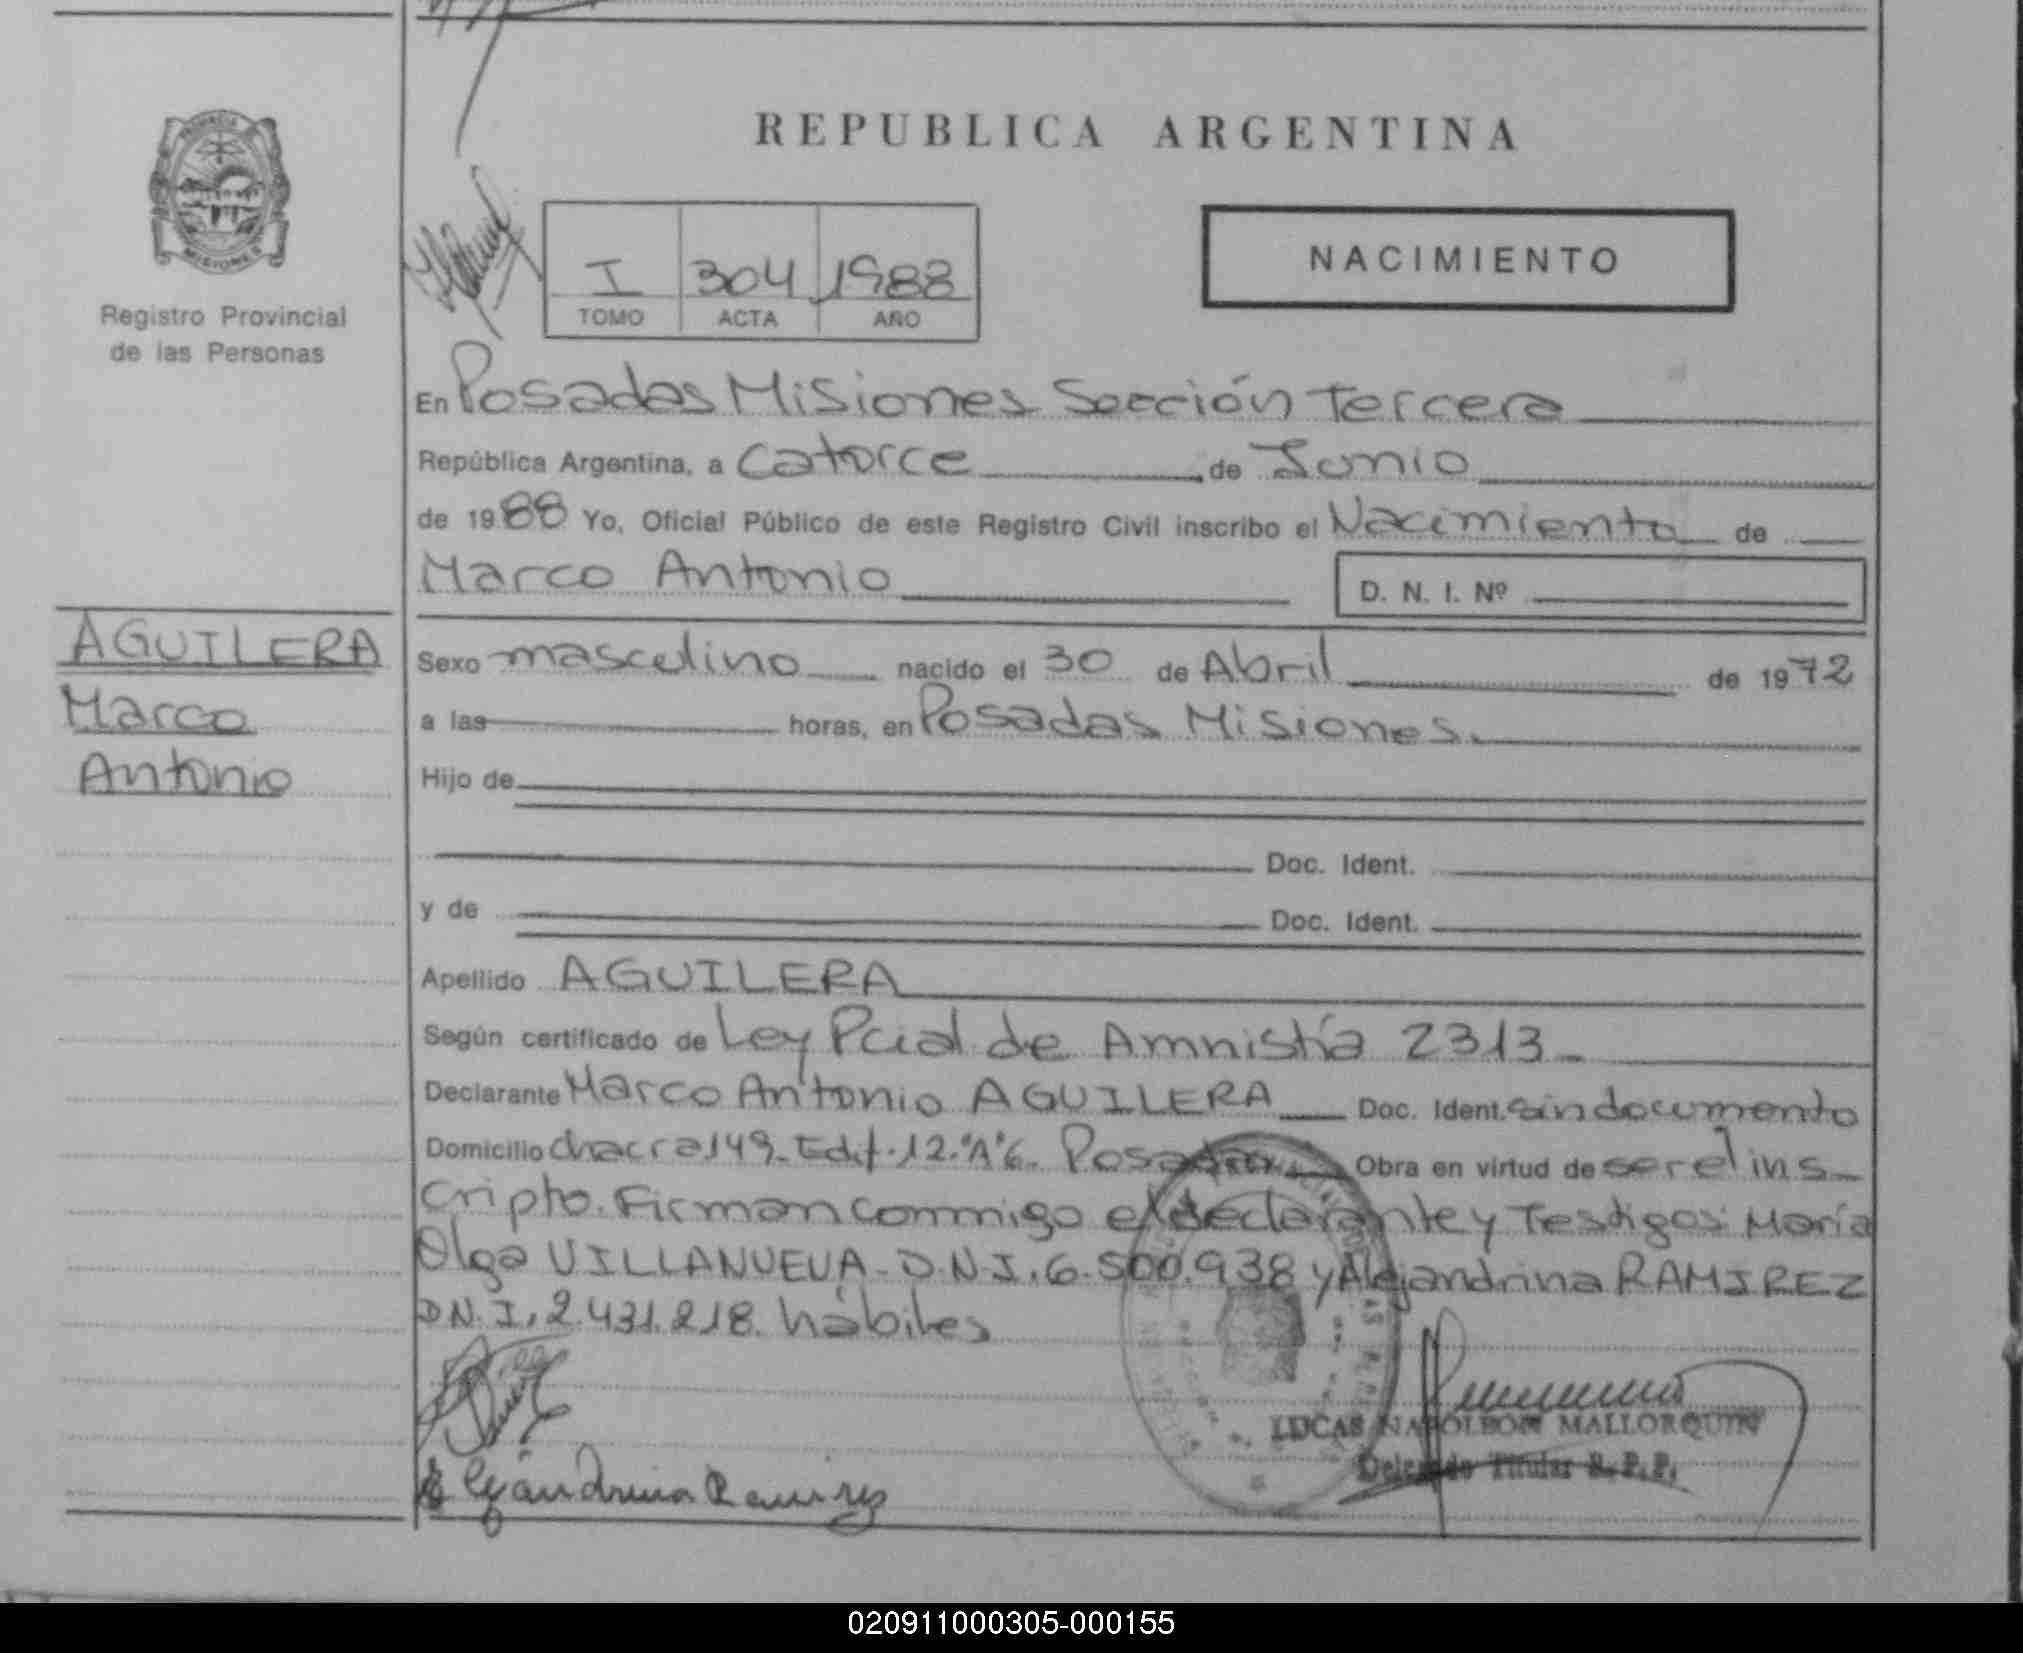 REPUBLICA ARGENTINA
PROVINCIA
MISIONES
Registro Provincial
de las Personas
I 304 1988
TOMO ACTA AÑO
NACIMIENTO
En Posadas Misiones Sección Tercera
República Argentina, a catorce de Junio
de 1988 Yo, Oficial Público de este Registro Civil inscribo el Nacimiento de
Marco Antonio D. N. I. Nº
AGUILERA
Marco
Antonio
Sexo masculino nacido el 30 de Abril de 1972
a las horas, en Posadas Misiones.
Hijo de
Doc. Ident.
y de Doc. Ident.
Apellido AGUILERA
Según certificado de Ley Pcial de Amnistía 2313
Declarante Marco Antonio AGUILERA Doc. Ident. sin documento
Domicilio chacra 149 - Edif. 12. "A" 6. Posadas Obra en virtud de ser el ins
cripto. Firman conmigo el declarante y Testigos María
Olga VILLANUEVA - D.N.I. 6.500.938 y Alejandrina RAMIREZ
D.N.I. 2.431.218. hábiles
LUCAS NAPOLEON MALLORQUIN
Delegado Titular R. P. P.
Alejandrina Ramirez
020911000305-000155